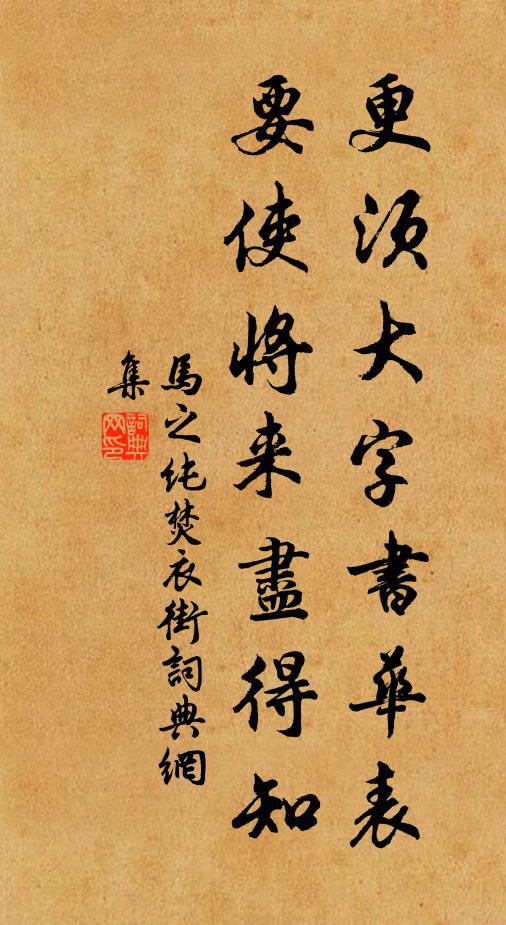 更須大字書華表
要使將来盡得知
馬之純焚衣街詞典網
集
詞典网印